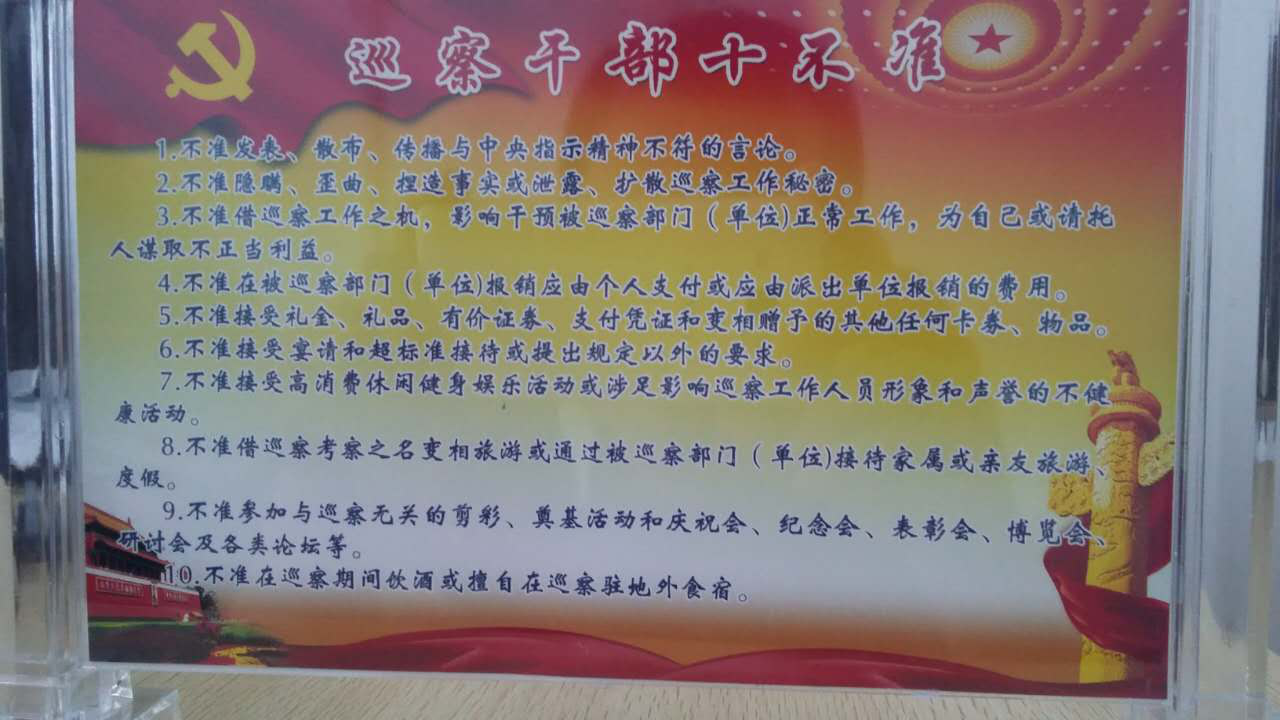 巡察干部十不准
1.不准发表、散布、传播与中央指示精神不符的言论。
2.不准隐瞒、歪曲、捏造事实或泄露、扩散巡察工作秘密。
3.不准借巡察工作之机，影响干预被巡察部门（单位)正常工作，为自己或请托
人谋取不正当利益。
4.不准在被巡察部门（单位)报销应由个人支付或应由派出单位报销的费用。
5.不准接受礼金、礼品、有价证券、支付凭证和变相赠予的其他任何卡券、物品。
6.不准接受宴请和超标准接待或提出规定以外的要求。
7.不准接受高消费休闲健身娱乐活动或涉足影响巡察工作人员形象和声誉的不健
康活动。
8.不准借巡察考察之名变相旅游或通过被巡察部门（单位)接待家属或亲友旅游、
度假。
9.不准参加与巡察无关的剪彩、奠基活动和庆祝会、纪念会、表彰会、博览会、
研讨会及各类论坛等。
10.不准在巡察期间饮酒或擅自在巡察驻地外食宿。